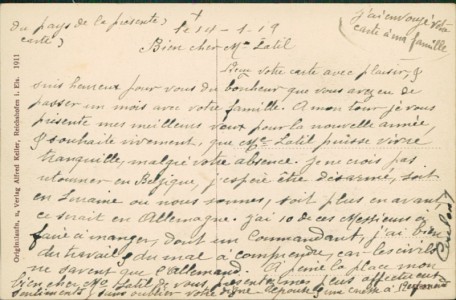 Du pays de la presente
carte)
le 14-1-19
j'ai envoyé votre
carte à ma famille
Bien cher Mr Latil
Reçu votre carte avec plaisir, je
suis heureux pour vous du bonheur que vous avez eu de
passer un mois avec votre famille. A mon tour je vous
présente mes meilleurs voeux pour la nouvelle année,
je souhaite vivement, que Mme Latil puisse vivre
tranquille, malgré votre absence. Je ne crois pas
retourner en Belgique, j'espère être désarmé, soit
en Lorraine ou nous sommes, soit plus en avant
ce serait en Allemagne. J'ai 10 de ces Messieurs a
faire à manger, dont un Commandant, j'ai bien
du travail, du mal à comprendre, car les civils
ne savent que l'Allemand. A peine la place mon
bien cher Mr Latil de vous présenter mes plus affectueux
sentiments, sans oublier votre digne epouse
Originalaufn. u. Verlag Alfred Keller, Reichshofen i. Els. 1911